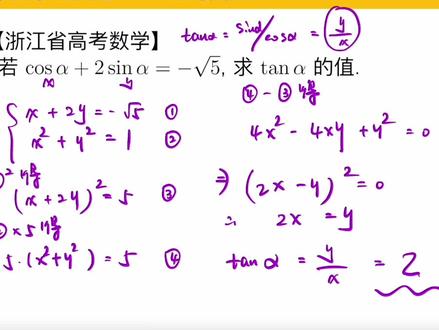 【浙江省高考数学】
tanα = sinα/cosα = (y/x)
若 cos α + 2 sin α = −√5, 求 tan α 的值.
x y
x + 2y = −√5 ①
x² + y² = 1 ②
④ − ③ 得
4x² − 4xy + y² = 0
①² 得
(x + 2y)² = 5 ③
⇒ (2x − y)² = 0
② × 5 得
∴ 2x = y
5·(x² + y²) = 5 ④
tan α = y/x = 2